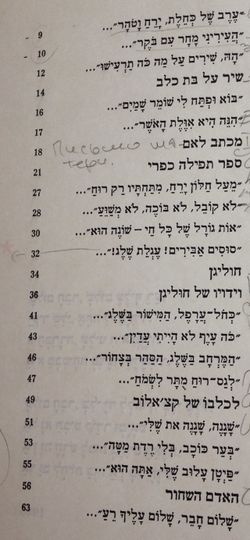 "עֶרֶב שֶׁל כְּחֵלֶת, יָרֵחַ וָטֹהַר"... 9
"הַעֲירִינִי מָחָר עִם בֹּקֶר"... 10
"הָהּ, שִׁירִים עַל מַה כֹּה תַרְעִישׁוּ"... 12
שיר על בת כלב 14
"בּוֹא וּפְתַח לִי שׁוֹמֵר שָׁמַיִם"... 16
"הִנֵּה הִיא אִוֶּלֶת הָאֹשֶׁר"... 17
מכתב לאם 18
Письмо матери.
ספר תפילה כפרי 21
"מֵעַל חַלּוֹן יָרֵחַ, מִתַּחְתָּיו רַק רוּחַ"... 27
"לֹא קוֹבֵל, לֹא בּוֹכֶה, לֹא מְשַׁוֵּעַ"... 28
"אוֹת גּוֹרָל שֶׁל כָּל חַי – שׁוֹנֶה הוּא"... 30
"סוּסִים אַבִּירִים! עֶגְלַת שֶׁלֶג!"... 32
חוליגן 34
וידויו של חוליגן 36
"כְּחֹל־עֲרָפֶל, הַמִּישׁוֹר בַּשֶּׁלֶג"... 41
"כֹּה עָיֵף לֹא הָיִיתִי עֲדַיִן"... 43
"הַמֶּרְחָב בַּשֶּׁלֶג, הַסַּהַר בְּצָחוֹר"... 46
"לְגַס־רוּחַ מֻתָּר לִשְׂמֹחַ"... 47
לכלבו של קצ'אלוב 49
"שָׁגַנֶה, שָׁגַנֶה אַתְּ שֶׁלִּי"... 51
"בְּעַר כּוֹכָב, בְּלִי רֶדֶת מַטָּה"... 53
"פַּיְטָן עָלוּב שֶׁלִּי, אַתָּה הוּא"... 55
האדם השחור 56
"שָׁלוֹם חָבֵר, שָׁלוֹם עָלֶיךָ רֵעַ"... 63